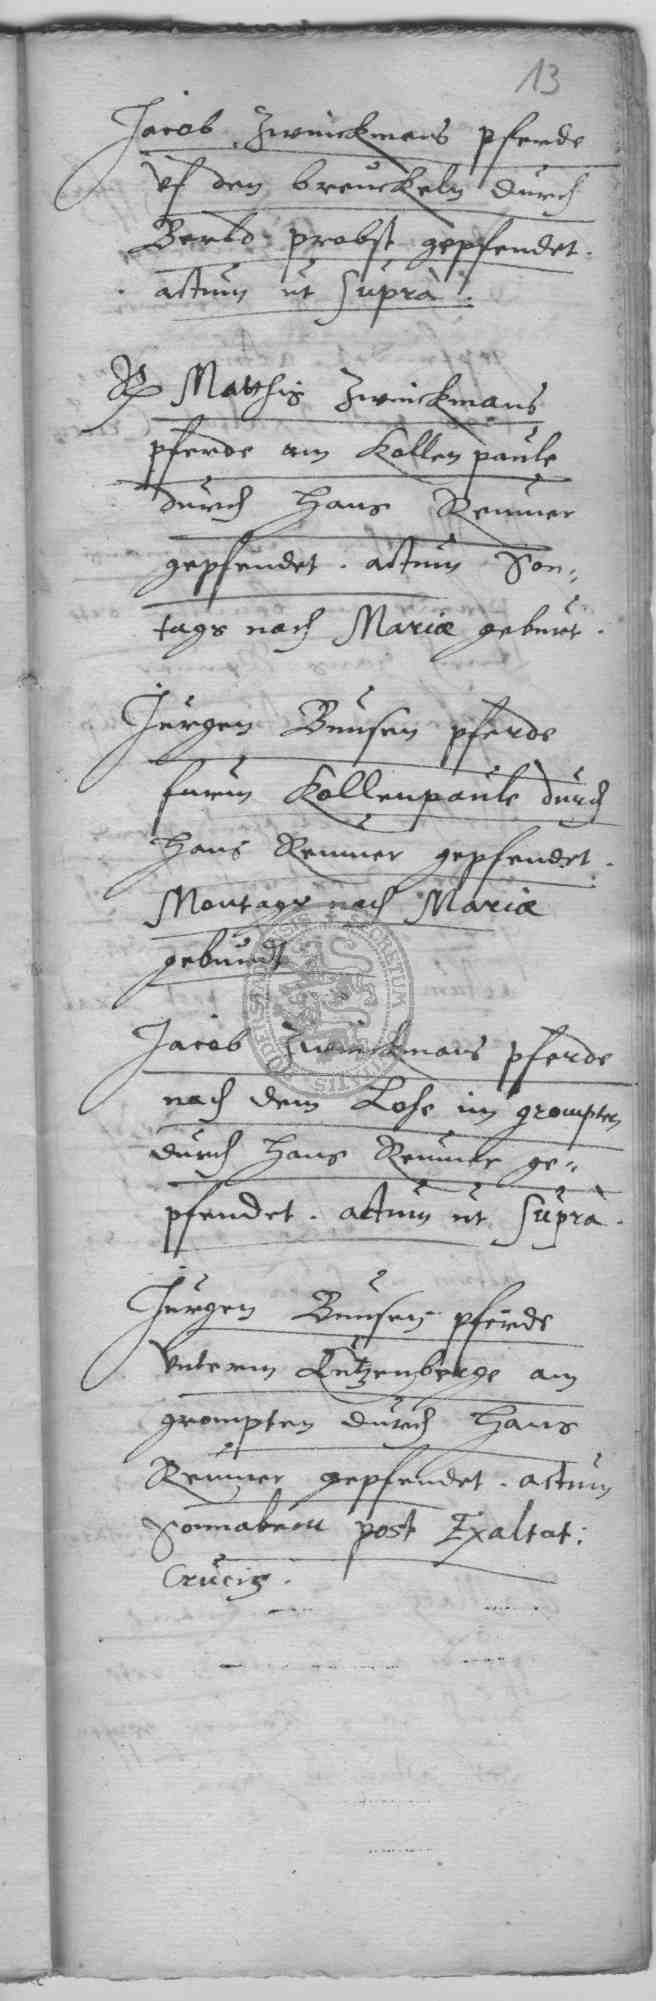 13
Jacob Zwinckmans pferde
uf den breuckeln durch
Berld probst gepfendet.
actum ut Suprà.
Matthis Zwinckmans
pferde am Kollenpaule
durch Hans Remmer
gepfendet. actum Son„
tags nach Mariæ geburt.
Jürgen Bensen pferde
furm Kollenpaule durch
Hans Remmer gepfendet.
Montags nach Mariæ
geburdt
Jacob Zwinckmans pferde
nach dem Lohe im grompten
durch Hans Remmer ge„
pfendet. actum ut Suprà.
Jürgen Bensen pferde
unterm Rutzenberge am
grompten durch Hans
Remmer gepfendet. actum
Sonnabent post Exaltat:
Crucis.